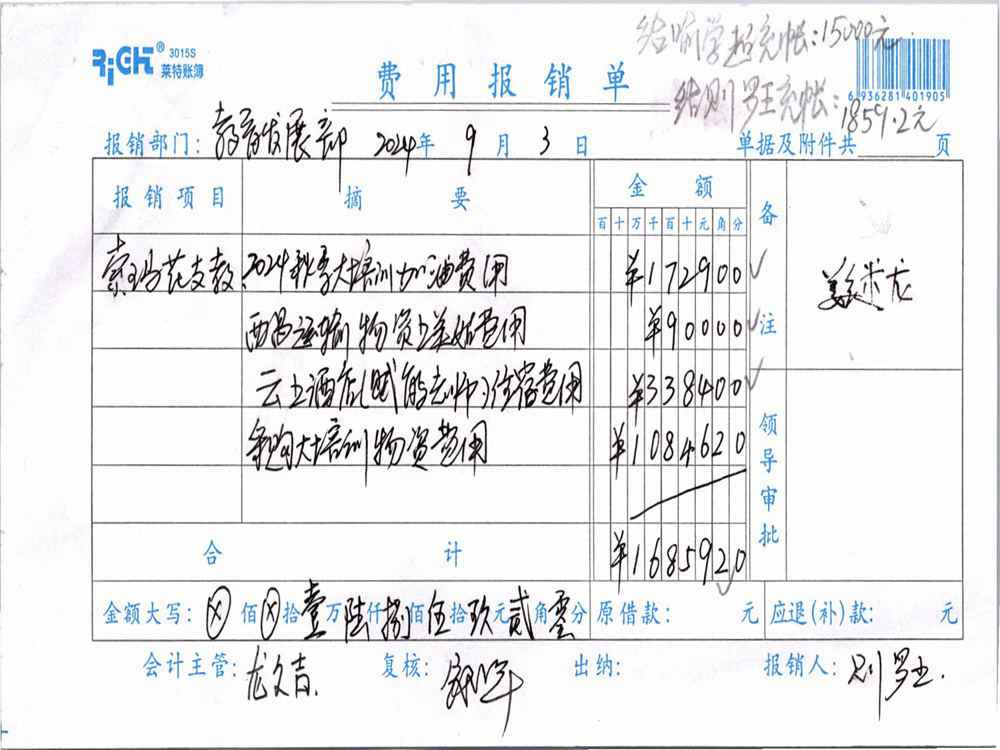 结喻学超充帐:15000元
RiCH® 3015S
莱特账簿
费用报销单
结则罗王充帐:1859.2元
6 936281 401905
报销部门: 教育发展部 2024年 9月 3日 单据及附件共 页
报销项目 摘要 金额 备注
百十万千百十元角分
索玛花支教 2024秋季大培训加油费用 ¥172900
西昌运输物资上美姑费用 ¥90000
云上酒店(赋能老师)住宿费用 ¥338400
采购大培训物资费用 ¥1084620
领导审批
合计 ¥1685920
金额大写: ⊗佰⊗拾壹万陆仟捌佰伍拾玖元贰角零分 原借款: 元 应退(补)款: 元
会计主管: 龙文吉. 复核: 出纳: 报销人: 则罗王.